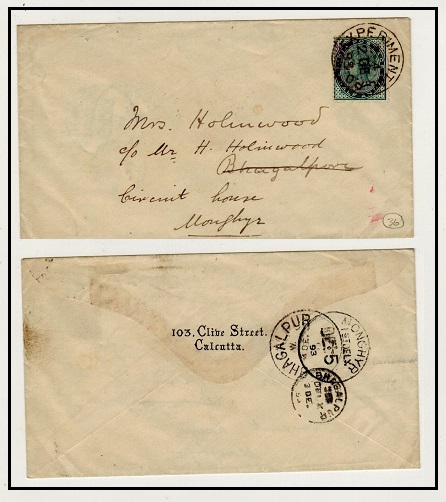 EXPERIMENTAL P.O.
Mrs. Holmwood
c/o Mr H. Holmwood
Bhagalpore
Circuit house
Monghyr
36
103, Clive Street.
Calcutta.
BHAGALPUR
93
MONGHYR
5
BHAGALPUR
2 DE.